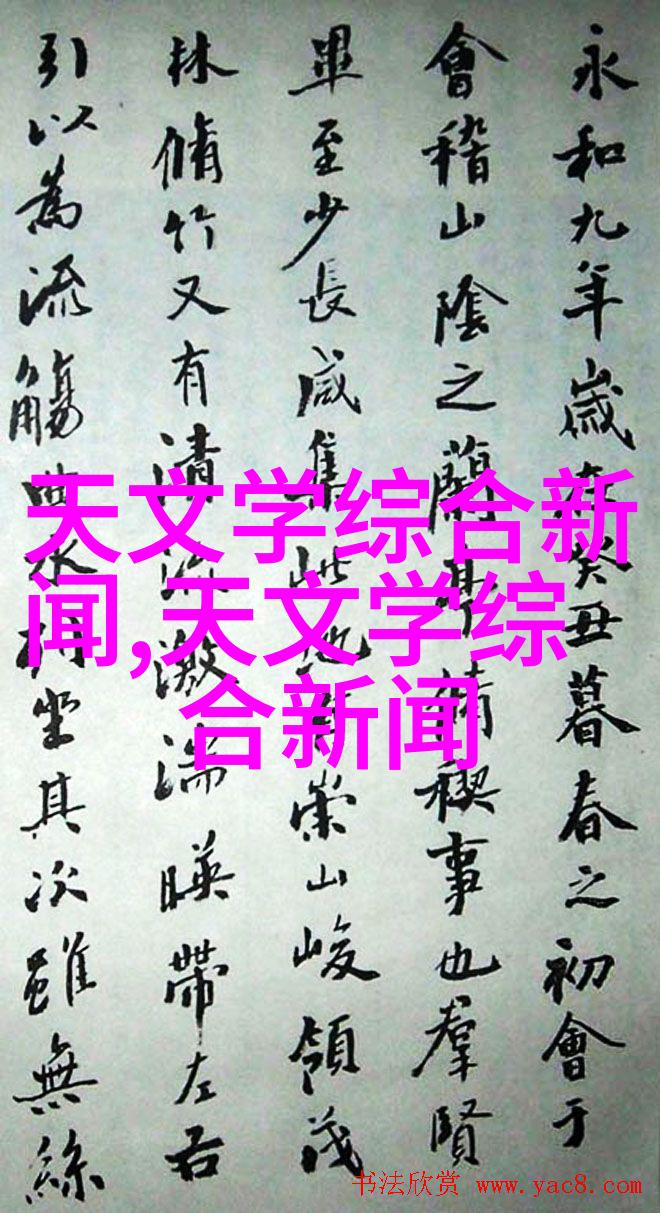 永和九年歲在癸丑暮春之初會于
會稽山陰之蘭亭脩禊事也羣賢
畢至少長咸集此地有崇山峻領茂
林脩竹又有清流激湍暎帶左右
引以為流觴曲水列坐其次雖無絲
天文学综合新
闻,天文学综
合新闻
书法欣赏 www.yac8.com